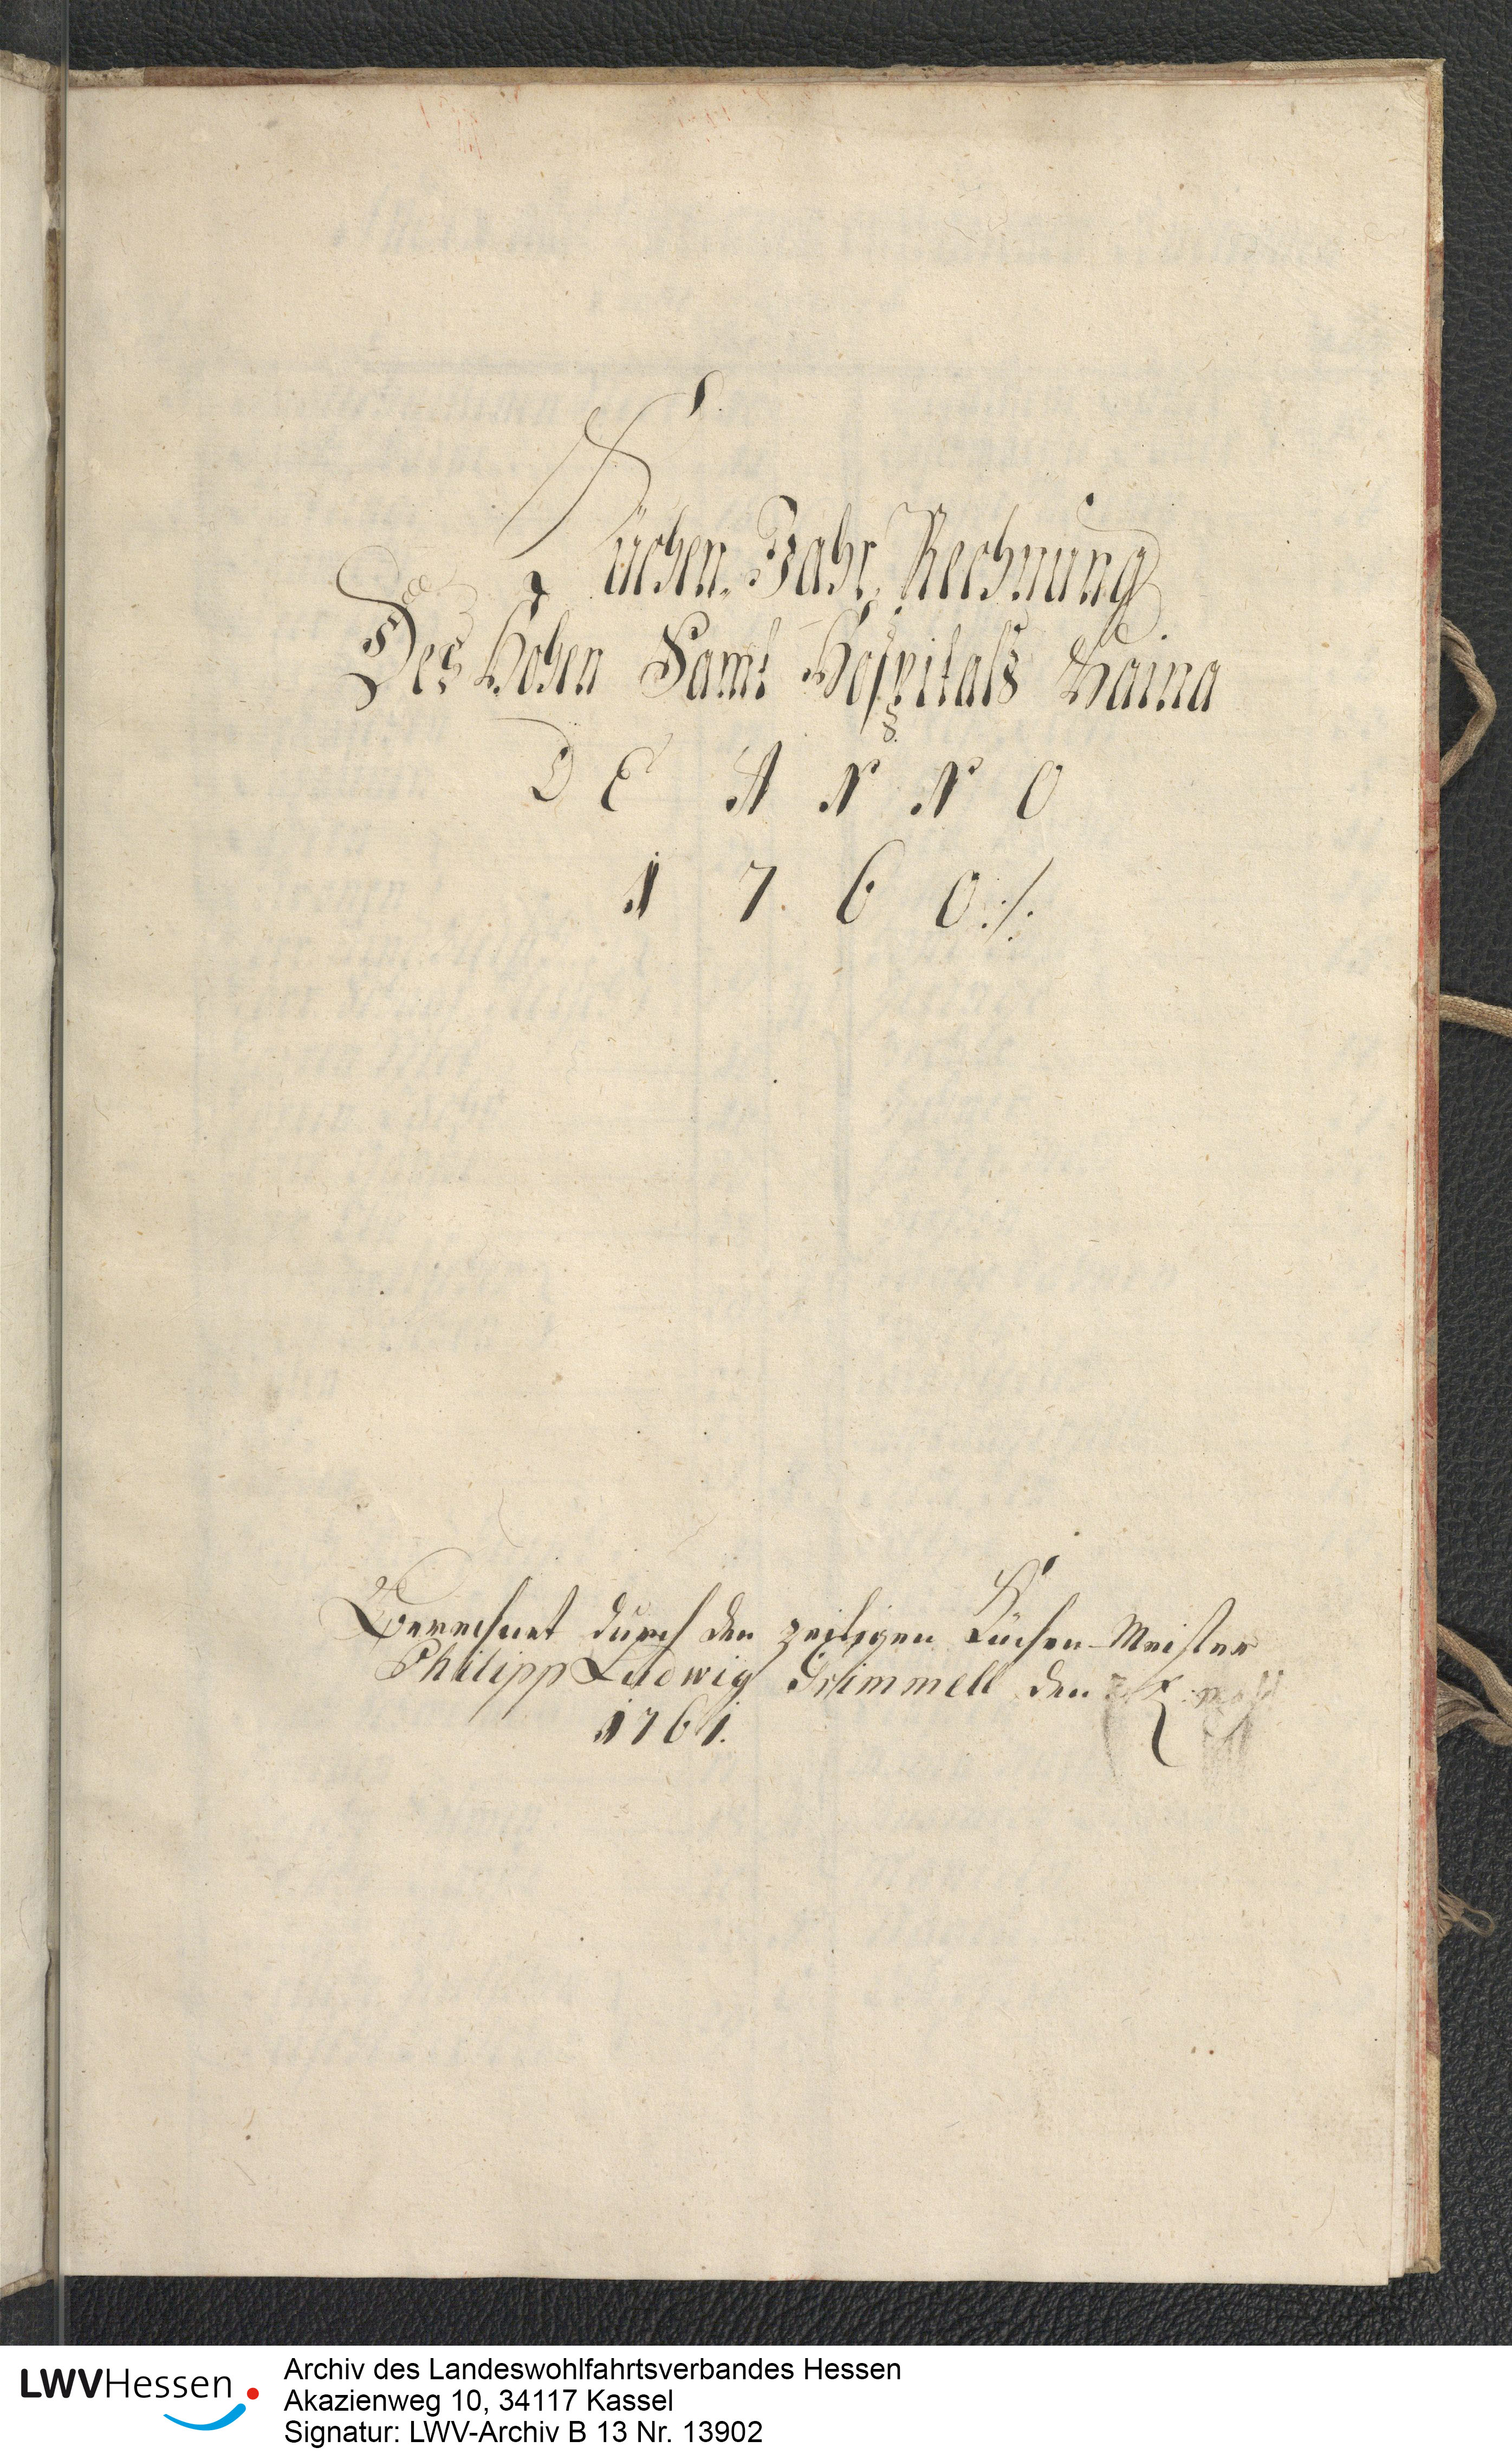 Küchen Jahr Rechnung
Des Hohen Samt Hospitals Haina
DE ANNO
1760 ./.
Berechnet durch den zeitigen Küchen-Meister
Philipp Ludwig Grimmell den
1761.
LWVHessen
Archiv des Landeswohlfahrtsverbandes Hessen
Akazienweg 10, 34117 Kassel
Signatur: LWV-Archiv B 13 Nr. 13902